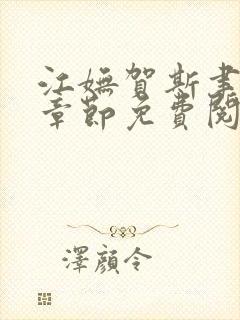 江嫵賀斯聿
章節免費閱
澤顏令